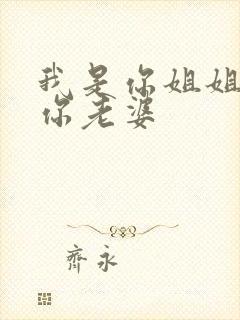 我是你姐姐
你老婆
齊永